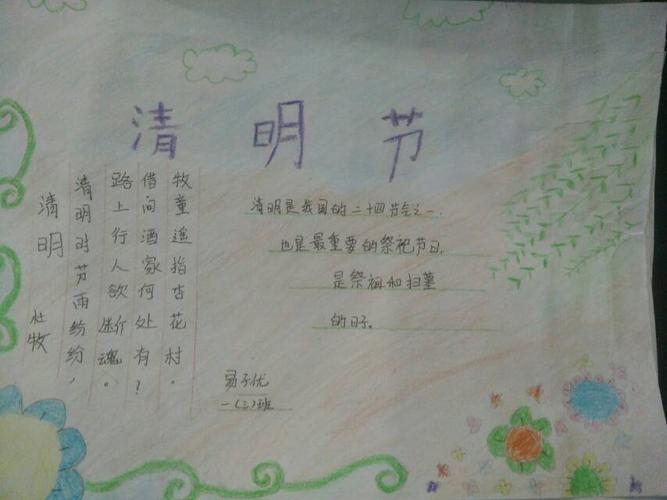 清明节
清明
杜牧
清明时节雨纷纷,
路上行人欲断魂。
借问酒家何处有?
牧童遥指杏花村.
清明是我国的二十四节气之一.
也是最重要的祭祀节日,
是祭祖和扫墓
的日子.
易子优
一(三)班